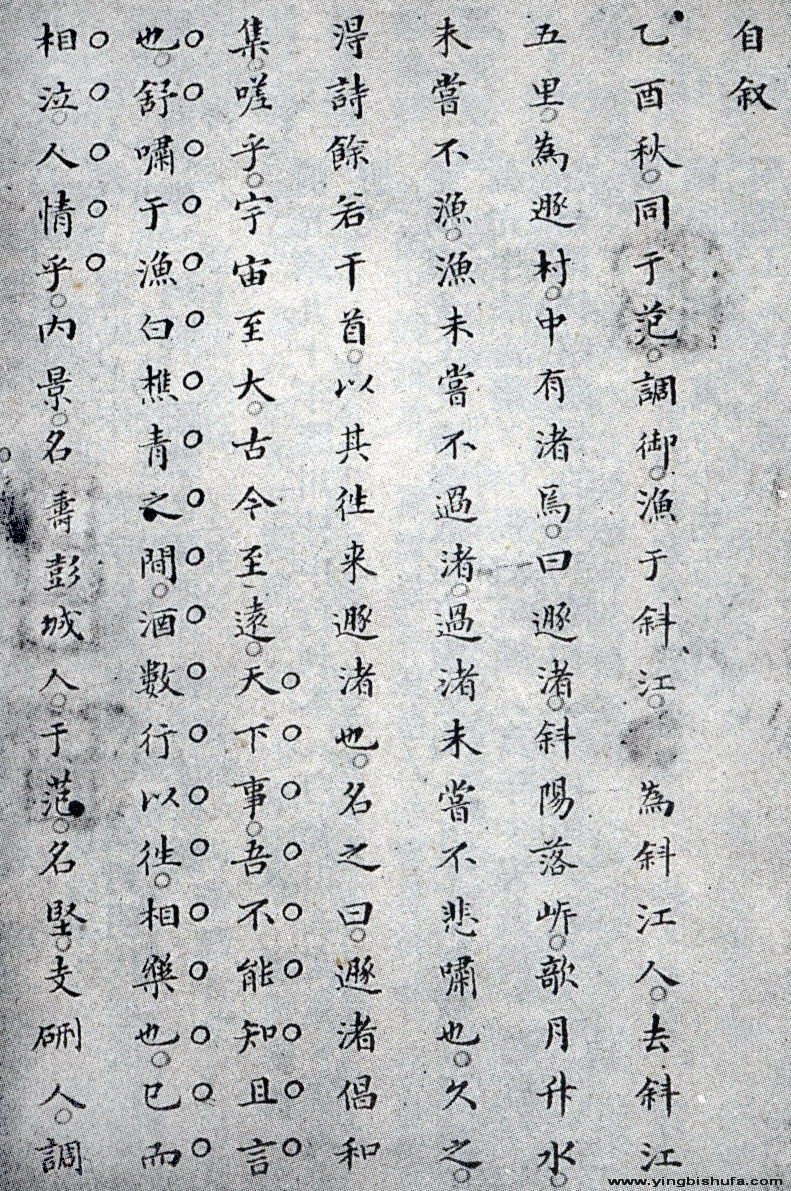 自叙
乙酉秋。同于范。調御。漁于斜江。為斜江人。去斜江
五里。為遯村。中有渚焉。曰遯渚。斜陽落岸。歌月升水。
未嘗不漁。漁未嘗不過渚。過渚未嘗不悲嘯也。久之。
淂詩餘若干首。以其徃来遯渚也。名之曰。遯渚倡和
集。嗟乎。宇宙至大。古今至遠。天下事。吾不能知且言
也。舒嘯于漁白樵青之間。酒數行以徃。相樂也。已而
相泣。人情乎。内景。名壽彭城人。于范。名堅。支硎人。調
www.yingbishufa.com